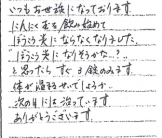 いつもお世話になっております
にんにく玉を飲み始めて
ぼうこう炎にならなくなりました。
"ぼうこう炎になりそうかな…?"
と思ったら すぐ 3錠のみます
体が温まるせいでしょうか…
次の日には治っています
ありがとうございます